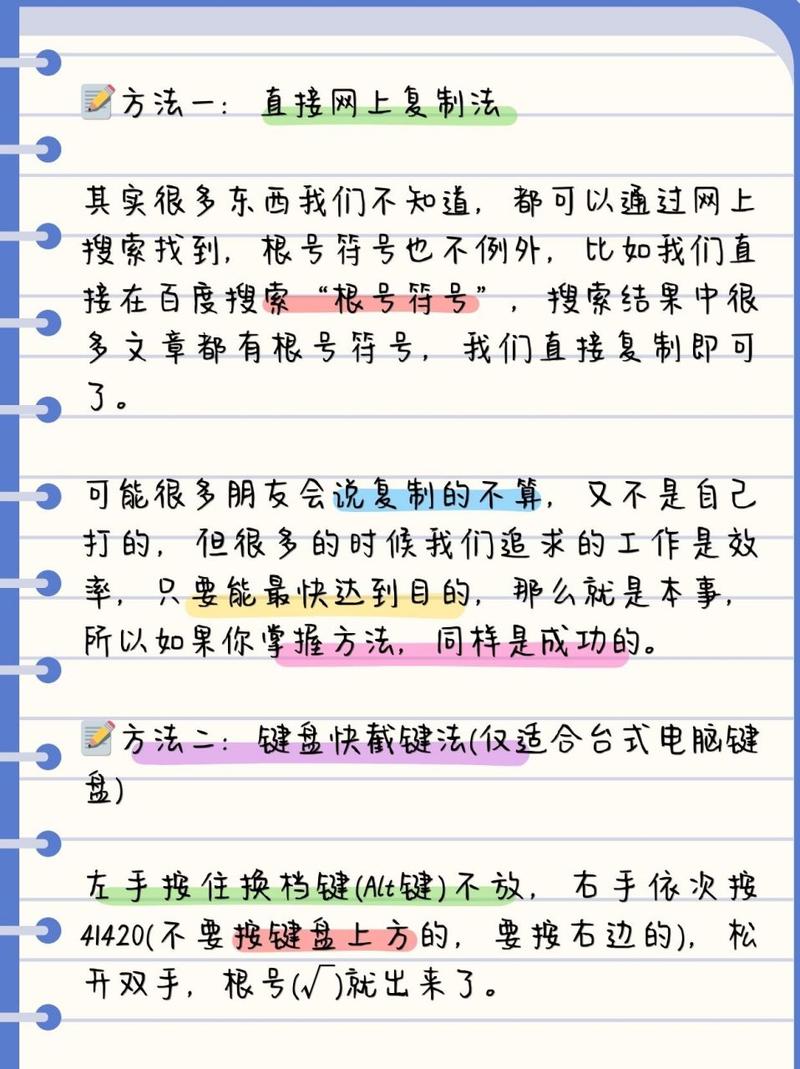 方法一：直接网上复制法
其实很多东西我们不知道，都可以通过网上
搜索找到，根号符号也不例外，比如我们直
接在百度搜索“根号符号”，搜索结果中很
多文章都有根号符号，我们直接复制即可
了。
可能很多朋友会说复制的不算，又不是自己
打的，但很多的时候我们追求的工作是效
率，只要能最快达到目的，那么就是本事，
所以如果你掌握方法，同样是成功的。
方法二：键盘快截键法(仅适合台式电脑键
盘)
左手按住换档键(Alt键)不放，右手依次按
41420(不要按键盘上方的，要按右边的)，松
开双手，根号(√)就出来了。